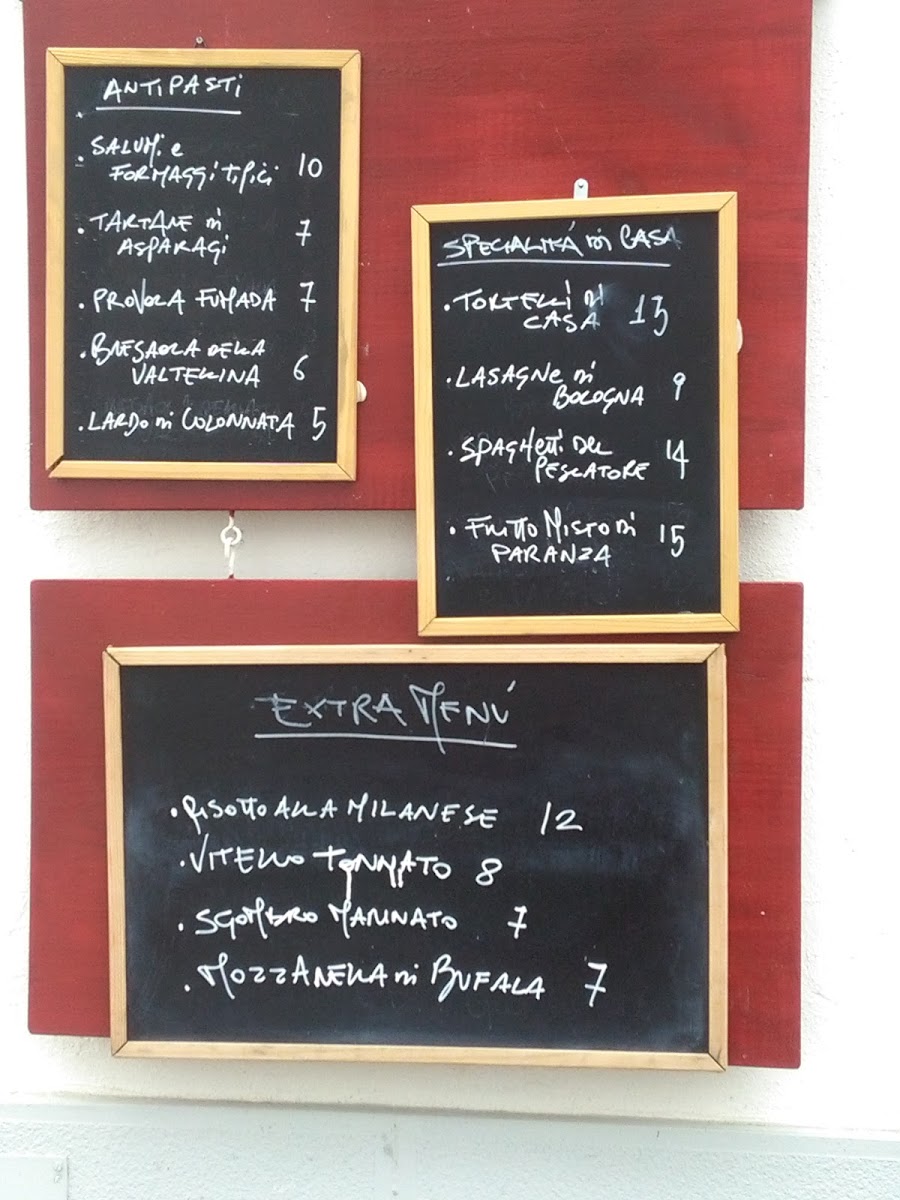 ANTIPASTI
• SALUMI e
FORMAGGI TIPICI 10
• TARTARE DI
ASPARAGI 7
• PROVOLA FUMADA 7
• BRESAOLA DELLA
VALTELLINA 6
• LARDO DI COLONNATA 5
SPECIALITÁ DI CASA
• TORTELLI DI
CASA 13
• LASAGNE DI
BOLOGNA 9
• SPAGHETTI DEL
PESCATORE 14
• FRITTO MISTO DI
PARANZA 15
EXTRA MENÚ
• RISOTTO ALLA MILANESE 12
• VITELLO TONNATO 8
• SGOMBRO MARINATO 7
• MOZZARELLA DI BUFALA 7